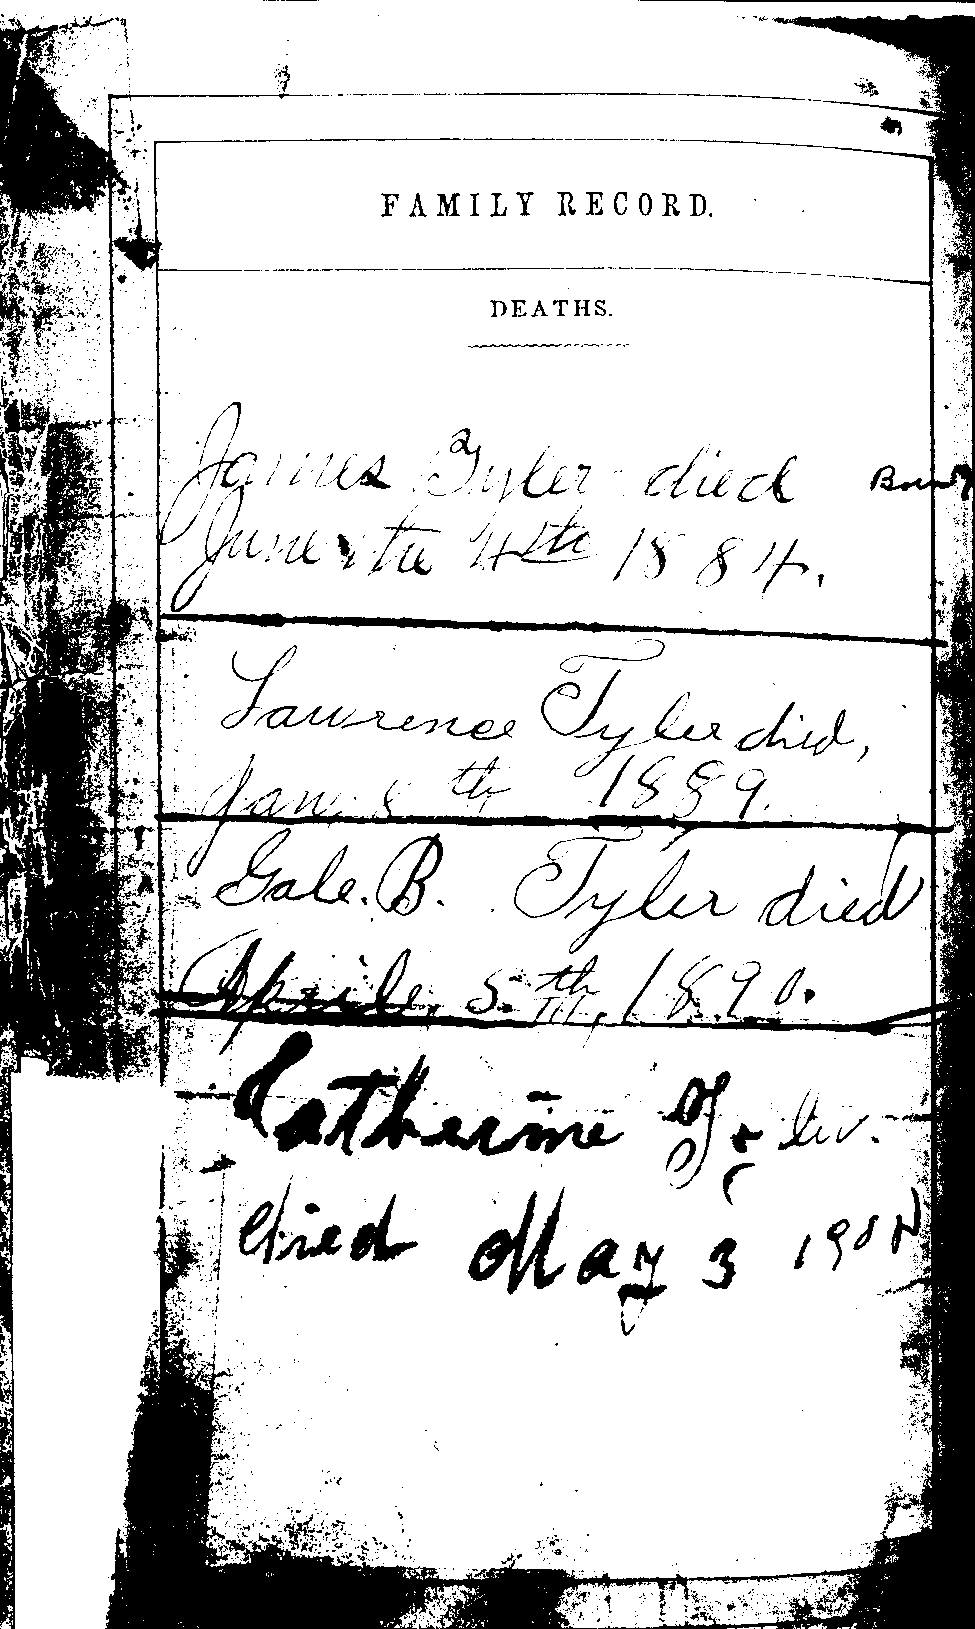 FAMILY RECORD.
DEATHS.
James Tyler died
June the 4th 1884.
Lawrence Tyler died,
Jan. 8th 1889.
Gale. B. Tyler died
Aprile, 5th, 1890.
Catherine Tyler.
died May 3